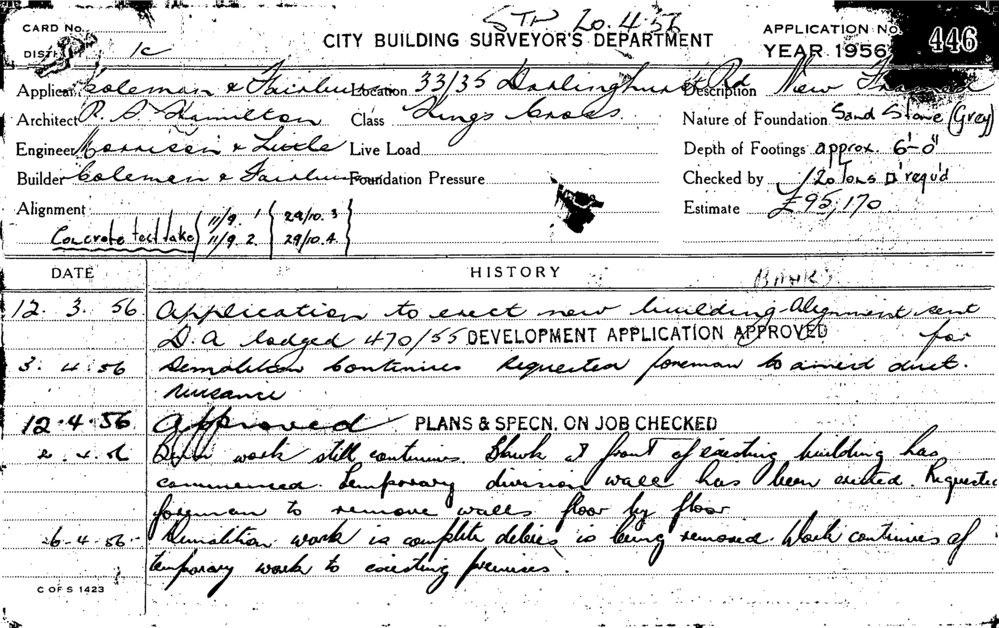 STP 20.4.56
CARD No.
DIST. 1c
CITY BUILDING SURVEYOR'S DEPARTMENT
APPLICATION No. 446
YEAR 1956
Applicant Coleman & Location 33/35 Darlinghurst Rd Description New
Architect R. A. Hamilton Class Kings Cross Nature of Foundation Sand Stone (Grey)
Engineer Morrison & Little Live Load Depth of Footings approx. 6'-0"
Builder Coleman & Foundation Pressure Checked by 120 Tons □' requ'd
Alignment Estimate £95,170
Concrete test take 11/9. 1 29/10. 3
11/9. 2. 29/10. 4.
DATE HISTORY
12. 3. 56 Application to erect new building Alignment sent
D. A lodged 470/55 DEVELOPMENT APPLICATION APPROVED for
3. 4. 56 Demolition continues Requested foreman to avoid dust.
nuisance
12.4.56 Approved PLANS & SPECN. ON JOB CHECKED
work still continues. at front of existing building has
commenced. Temporary division wall has been erected. Requested
foreman to remove walls floor by floor
6-4-56- Demolition work is complete debris is being removed. Work continues of
temporary work to existing premises.
C OF S 1423